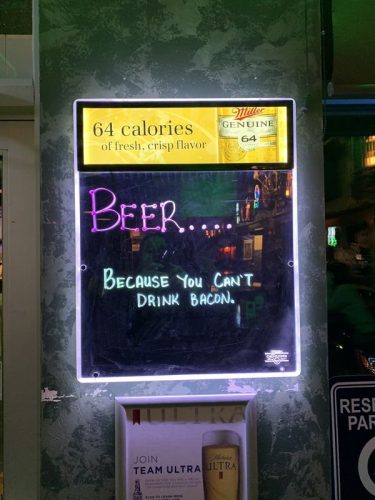 64 calories
of fresh, crisp flavor
Miller
GENUINE
64
BEER....
BECAUSE YOU CAN'T
DRINK BACON.
ULTRA
JOIN
TEAM ULTRA
Michelob
ULTRA
RESE
PAR